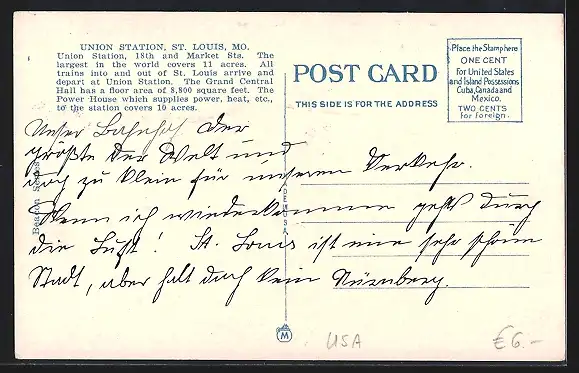 UNION STATION, ST. LOUIS, MO.
Union Station, 18th and Market Sts. The
largest in the world covers 11 acres. All
trains into and out of St. Louis arrive and
depart at Union Station. The Grand Central
Hall has a floor area of 8,800 square feet. The
Power House which supplies power, heat, etc.,
to the station covers 10 acres.
POST CARD
THIS SIDE IS FOR THE ADDRESS
Place the Stamp here
ONE CENT
For United States
and Island Possessions
Cuba, Canada and
Mexico.
TWO CENTS
for Foreign.
Unser Bahnhof der
größte der Welt und
noch zu klein für unseren Verkehr.
Wenn ich wiederkomme geht's durch
die Luft! St. Louis ist eine sehr schöne
Stadt, aber halt doch kein Nürnberg.
Beacon Series
MADE IN USA
M
USA
€6.-